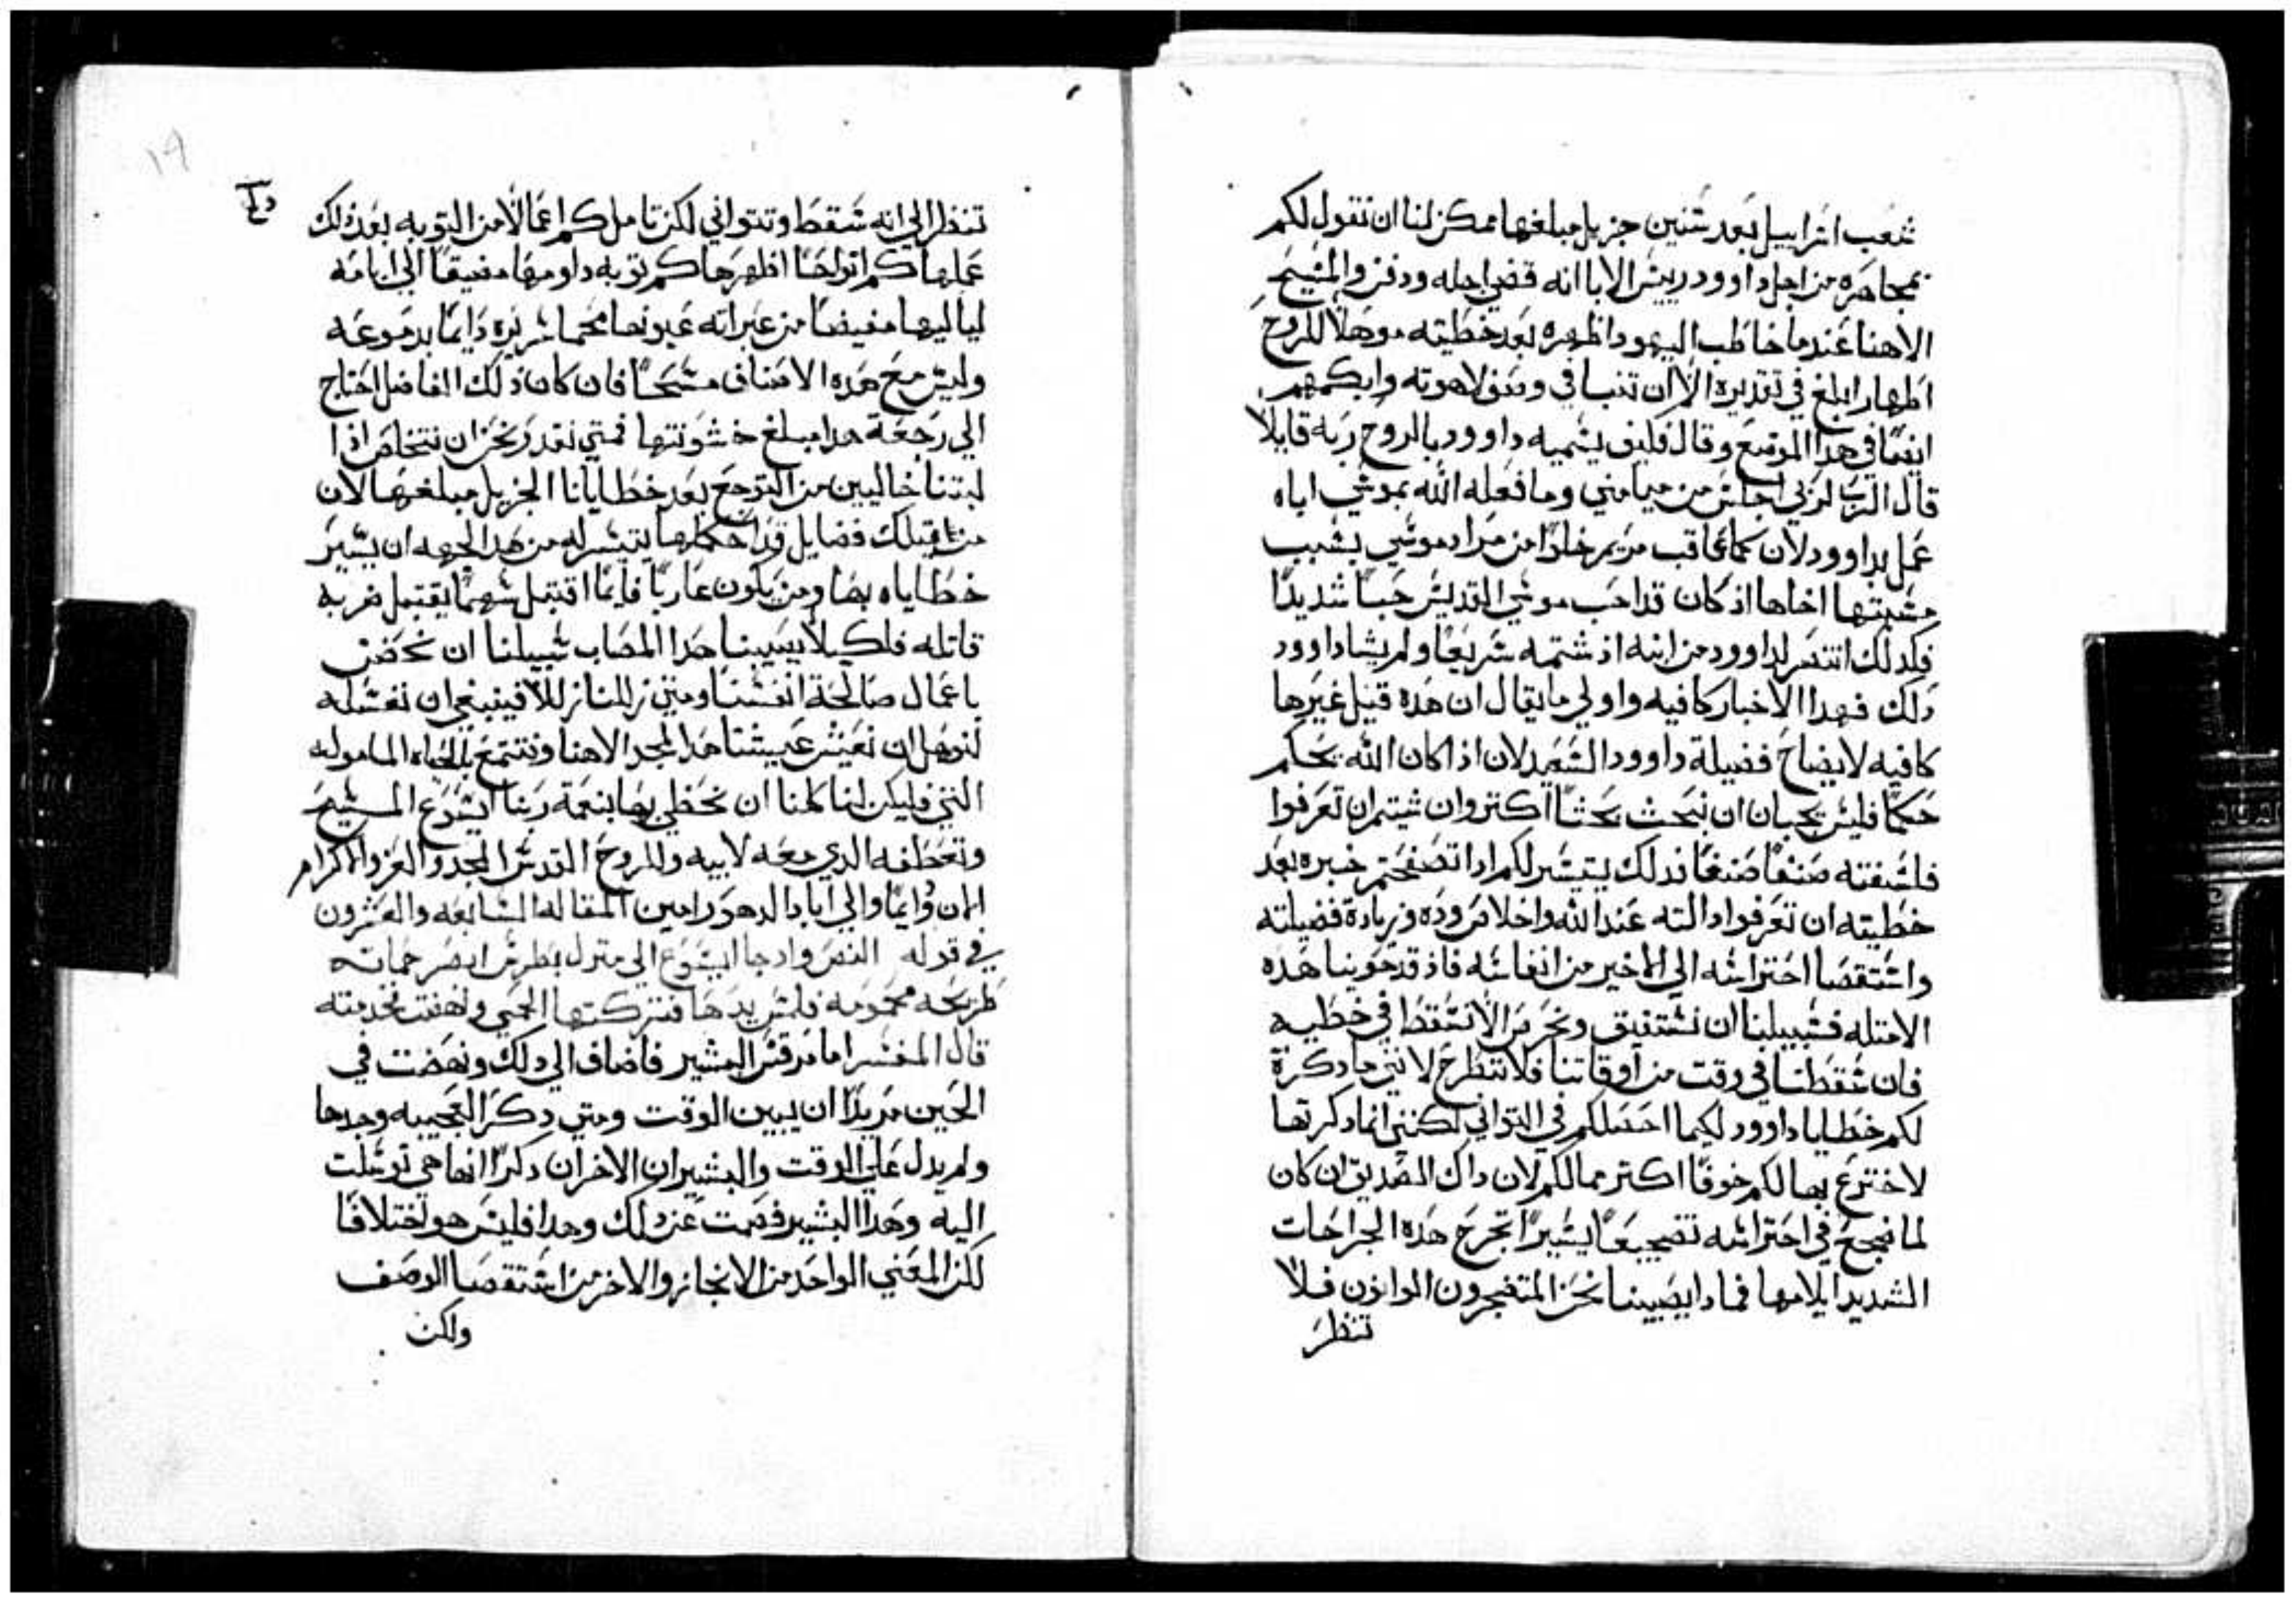 شعب اسراييل بعد سنين جزيل مبلغها ممكن لنا ان نقول لكم
بمجاهره من اجل داوود رييس الابا انه قضي اجله ودفن والمسيح
الاهنا عندما خاطب اليهود اظهره بعد خطيته موهلا للروح
اظهار ابلغ في تقديره الا ان تنبا في وصف لاهوته وابكمهم
ايضا في هدا الموضع وقال فكيف يسميه داوود بالروح ربه قايلا
قال الرب لربي اجلس من ميامني وما فعله الله بموسي اياه
عمل بداوود لان كما عاقب مريم خلوا من مراد موسي بسبب
مسبتها اخاها اذ كان قد احب موسي القديس حبا شديدا
فكدلك انتصر لداوود من ابنه اذ شتمه سريعا ولم يشا داوود
دلك فهدا الاخبار كافيه واولي ما يقال ان هده قبل غيرها
كافيه لايضاح فضيلة داوود السعيد لان اذا كان الله يحكم
حكما فليس يجب ان نبحث بحثا اكتر وان شيتم ان تعرفوا
فلسفته صنفا صنفا فدلك يتيسر لكم ادا تصفحتم خبره بعد
خطيته ان تعرفوا دالته عند الله واخلاص وده وزيادة فضيلته
واستقصا احتراسه الي الاخير من انفاسه فاذ قد حوينا هده
الامتله فسبيلنا ان نستفيق ونحرص الا نسقط في خطيه
فان سقطنا في وقت من اوقاتنا فلا ننطرح لانني ما دكرة
لكم خطايا داوود لكيما احصلكم في التواني لكنني انما دكرتها
لاخترع بها لكم خوفا اكتر مما لكم لان داك الصديق ان كان
لما ضجع في احتراسه تضجيعا يسيرا تجرح هده الجراحات
الشديد ايلامها فمادا يصيبنا نحن المتضجرون الوانون فلا
تنظر
تنظر الي انه سقط وتتواني لكن تامل كم اعمالا من التوبه بعد ذلك
عملها كم انواحا اظهرها كم توبه داومها مضيفا الي ايامه
لياليها مفيضا من عبراته عيونا محما سريره دايما بدموعه
وليس مع هده الاصناف مسحا فان كان ذلك الفاضل احتاج
الي رجعة هدا مبلغ خشونتها فمتي نقدر نحن ان نتخلص اذا
لبتنا خاليين من التوجع بعد خطايانا الجزيل مبلغها لان
من قبلك فضايل قد احكمها يتيسر له من هدا الجهه ان يستر
خطاياه بها ومن يكون عاريا فايما اقتبل سهما يقتبل ضربه
قاتله فلكيلا يصيبنا هدا المصاب سبيلنا ان نحصن
باعمال صالحة انفسنا ومتي زللنا زللا فينبغي ان نغسله
لنوهل ان نعيش عيشتنا هدا لمجد الاهنا ونتمتع بالحياه الماموله
التي فليكن لنا كلنا ان نحظي بها بنعمة ربنا ايسوع المسيح
وتعطفه الدي معه لابيه وللروح القدس المجد والعز والاكرام
الان ودايما والي اباد الدهور امين المقاله السابعه والعشرون
في قوله النص واد جا ايسوع الي منزل بطرس ابصر حماته
طريحه محمومه فلمس يدها فتركتها الحمي ونهضت تخدمته
قال المفسر اما مرقس البشير فاضاف الي دلك ونهضت في
الحين مريدا ان يبين الوقت ومتي دكر العجيبه وحدها
ولم يدل علي الوقت والبشيران الاخران دكرا انها هي توسلت
اليه وهدا البشير فصمت عن دلك وهدا فليس هو اختلافا
لكن المعني الواحد من الانجاز والاخر من استقصا الوصف
ولكن